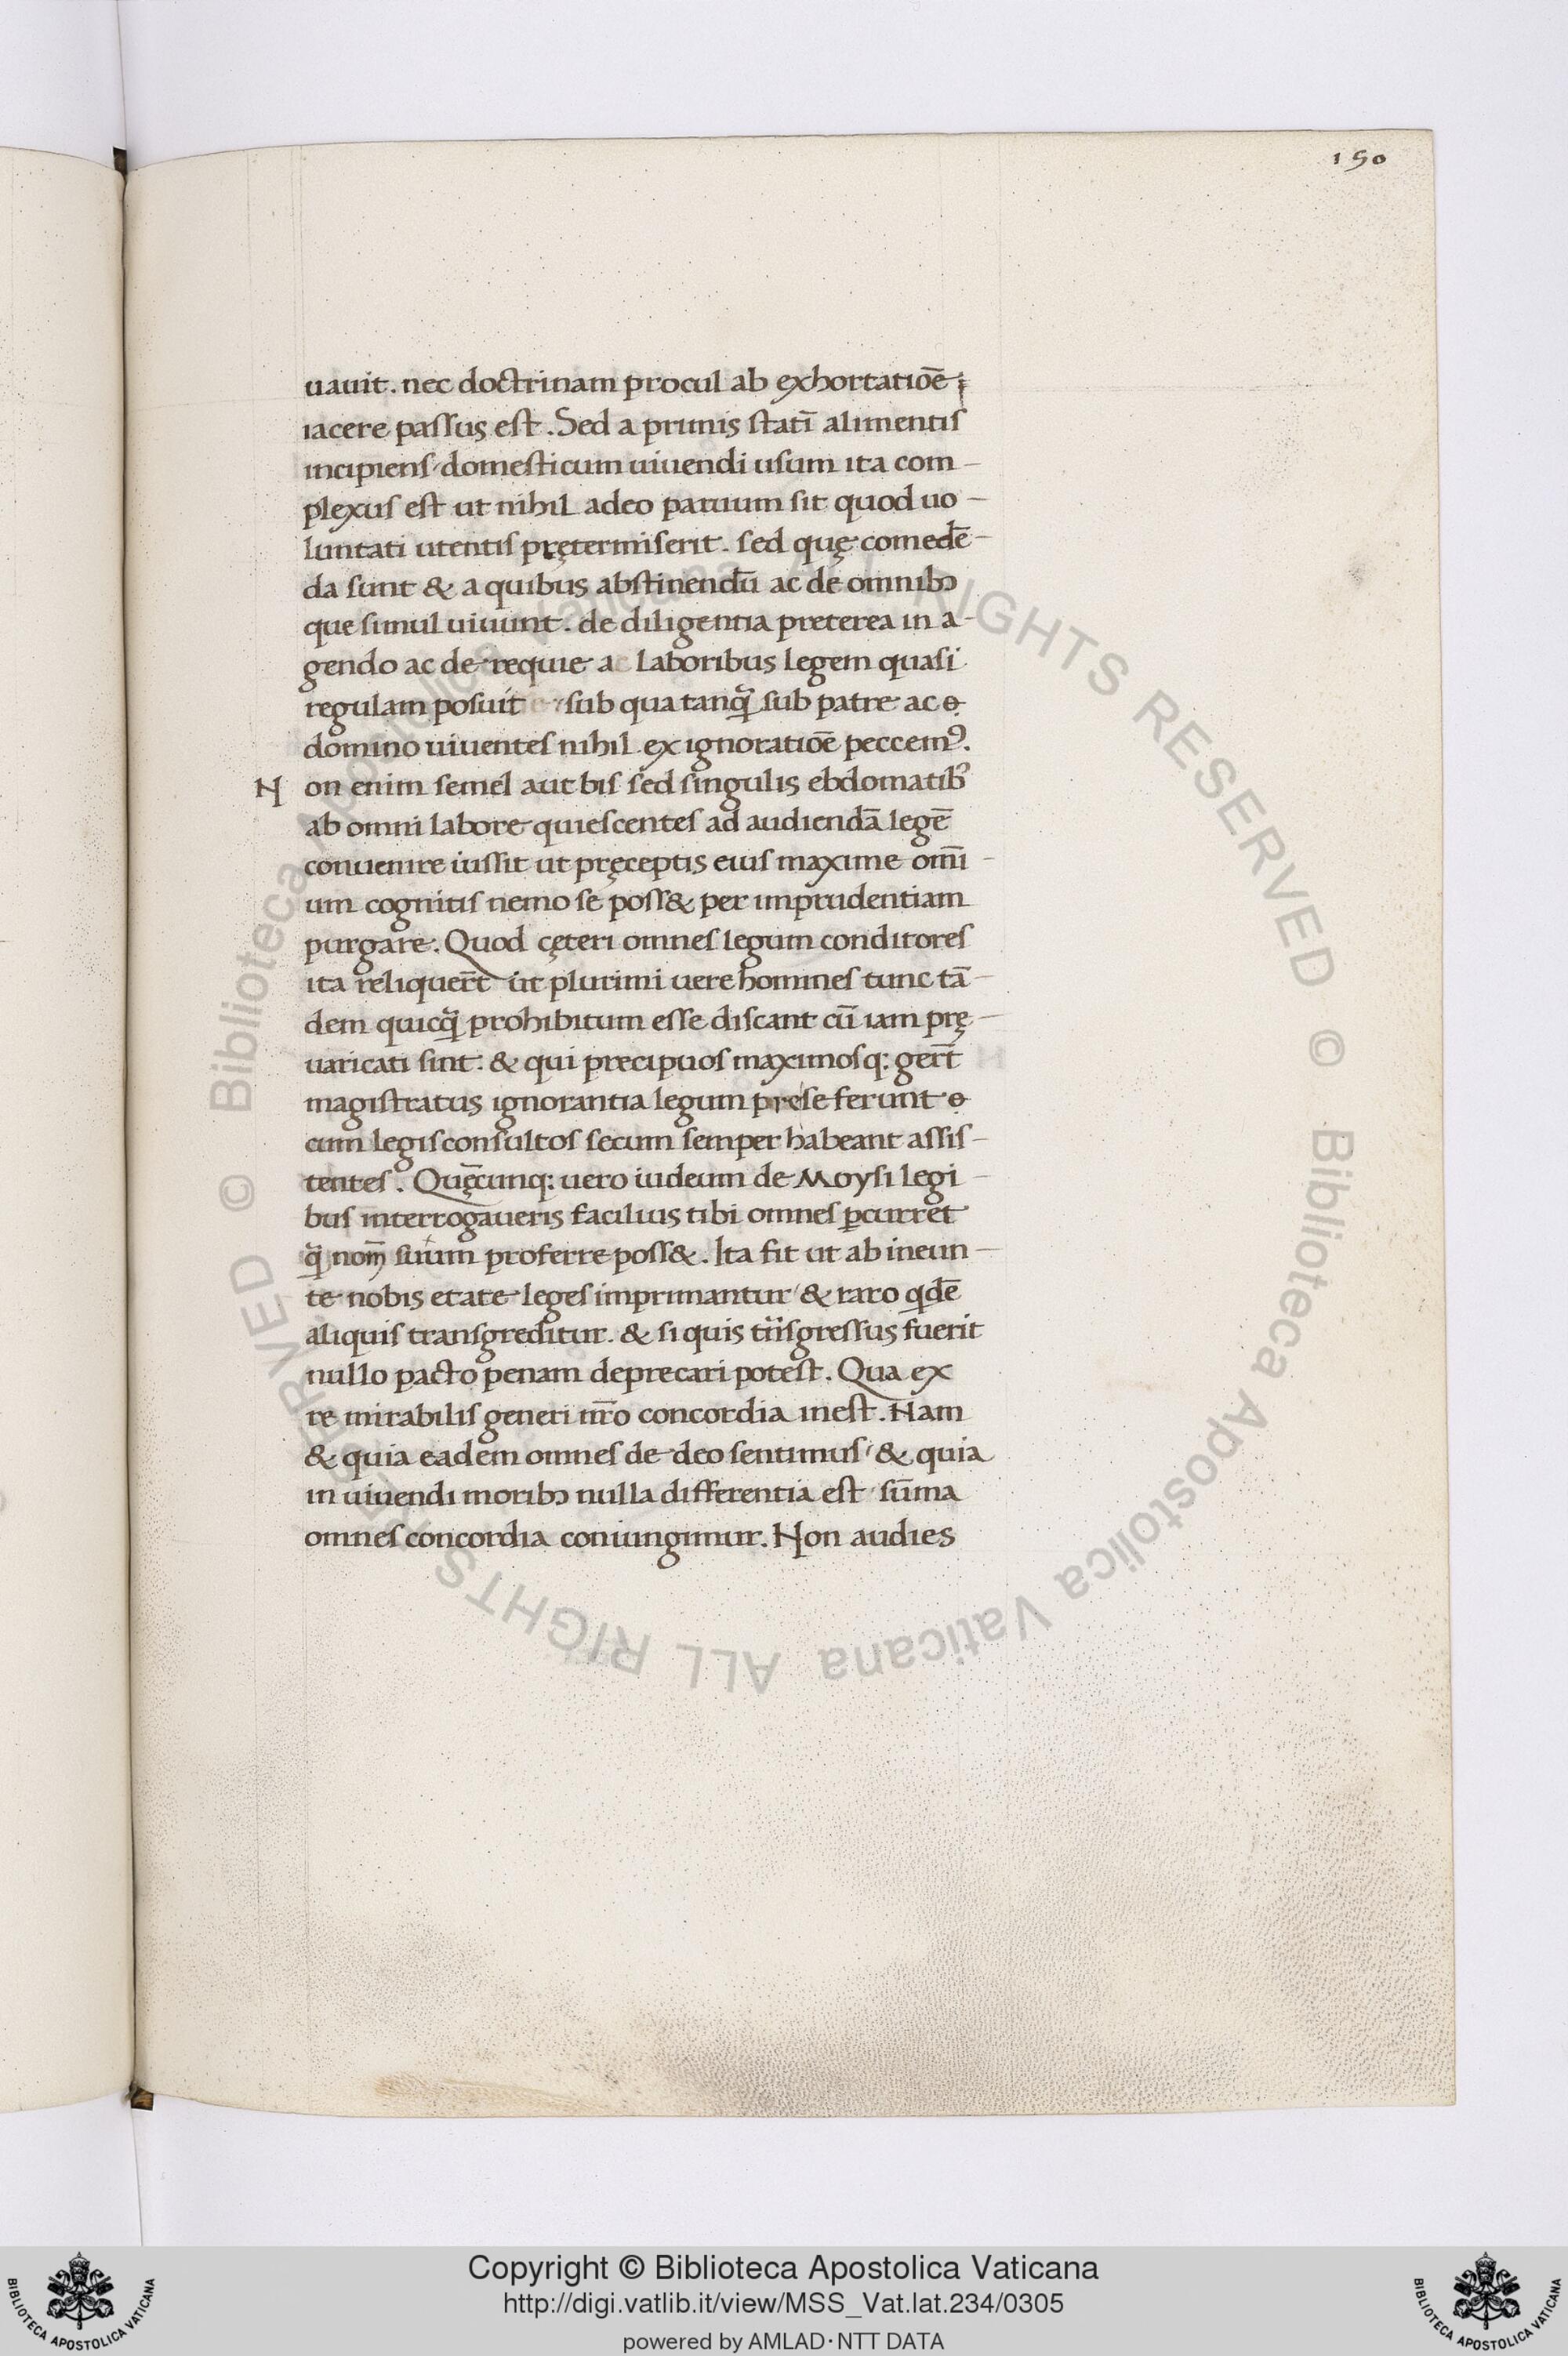 150
uauit. nec doctrinam procul ab exhortatiōe
iacere passus est. Sed a primis statī alimentis
incipiens domesticum uiuendi usum ita com-
plexus est ut nihil adeo paruum sit quod uo-
luntati utentis prętermiserit. sed quę comedē-
da sunt & a quibus abstinendū ac de omnibꝰ
que simul uiuunt. de diligentia preterea in a-
gendo ac de requie ac laboribus legem quasi
regulam posuit / sub qua tanꝙ̄ sub patre ac
domino uiuentes nihil ex ignoratiōe peccemꝰ.
Non enim semel aut bis sed singulis ebdomatibꝰ
ab omni labore quiescentes ad audiendā legē
conuenire iussit ut pręceptis eius maxime omī-
um cognitis nemo se poss& per imprudentiam
purgare. Quod cęteri omnes legum conditores
ita reliquer̄t ut plurimi uere homines tunc tā-
dem quicꝙ̄ prohibitum esse discant cū iam prę-
uaricati sint. & qui precipuos maximosq: ger̄t
magistratus ignorantia legum prese ferunt
cum legisconsultos secum semper habeant assis-
tentes. Quęcunq: uero iudeum de Moysi legi-
bus interrogaueris facilius tibi omnes ꝑcurret
ꝙ̄ nom̄ suum proferre poss&. Ita fit ut ab ineun-
te nobis etate leges imprimantur / & raro qdē
aliquis transgreditur. & si quis trāsgressus fuerit
nullo pacto penam deprecari potest. Qua ex
re mirabilis generi nr̄o concordia inest. Nam
& quia eadem omnes de deo sentimus / & quia
in uiuendi moribꝰ nulla differentia est / sūma
omnes concordia coniungimur. Non audies
© Biblioteca Apostolica Vaticana ALL RIGHTS RESERVED © Biblioteca Apostolica Vaticana ALL RIGHTS RESERVED
BIBLIOTECA APOSTOLICA VATICANA
Copyright © Biblioteca Apostolica Vaticana
http://digi.vatlib.it/view/MSS_Vat.lat.234/0305
powered by AMLAD·NTT DATA
BIBLIOTECA APOSTOLICA VATICANA